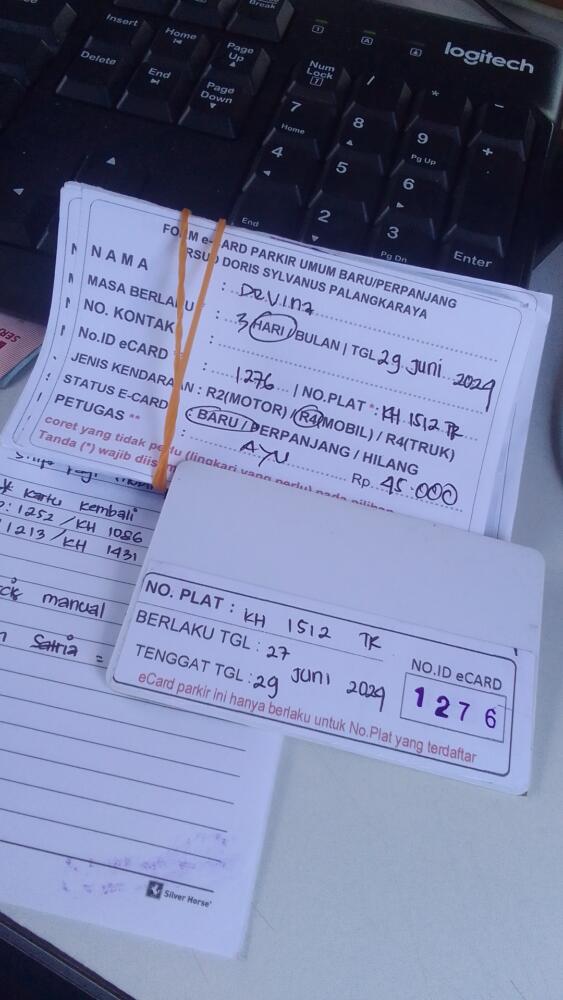 Break
Insert
Home
Page Up
Delete
End
Page Down
logitech
Num Lock
/
*
-
7 Home
8
9 Pg Up
+
4
5
6
End
2
3 Pg Dn
Enter
FORM e-CARD PARKIR UMUM BARU/PERPANJANG
RSUD DORIS SYLVANUS PALANGKARAYA
NAMA : Devina
MASA BERLAKU : 3 HARI/BULAN | TGL 29 Juni 2024
NO. KONTAK
No.ID eCARD 1276 | NO.PLAT *: KH 1512 TK
JENIS KENDARAAN : R2(MOTOR) / R4(MOBIL) / R4(TRUK)
STATUS E-CARD : BARU / PERPANJANG / HILANG
PETUGAS ** : AYU Rp. 45.000
coret yang tidak perlu (lingkari yang perlu) pada pilihan
Tanda (*) wajib diisi
kartu kembali
: 1252 / KH 1086
1213 / KH 1431
manual
Satria =
NO. PLAT : KH 1512 TK
BERLAKU TGL : 27
TENGGAT TGL : 29 Juni 2024
NO.ID eCARD
1276
eCard parkir ini hanya berlaku untuk No.Plat yang terdaftar
Silver Horse